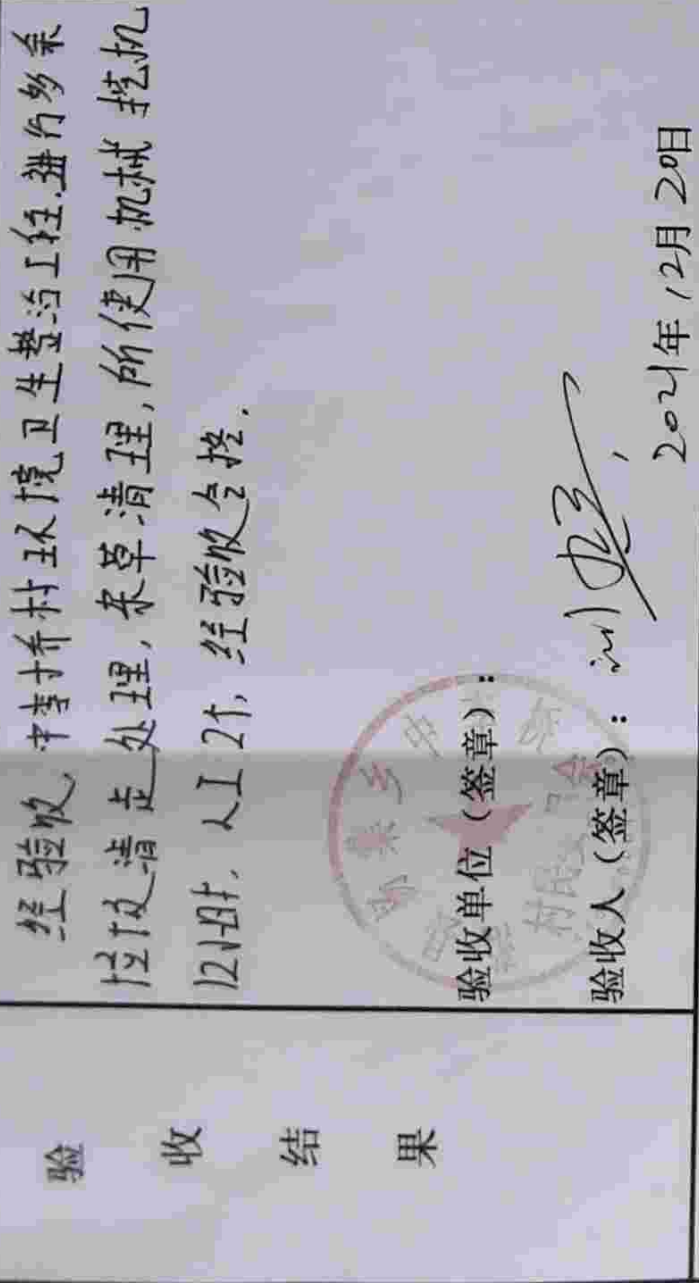 验收结果
经验收,中李桥村环境卫生整治工程.进行多余
垃圾清走处理,杂草清理,所使用机械挖机
12小时,人工2个,经验收合格.
验收单位(签章):
验收人(签章):
2021年12月20日